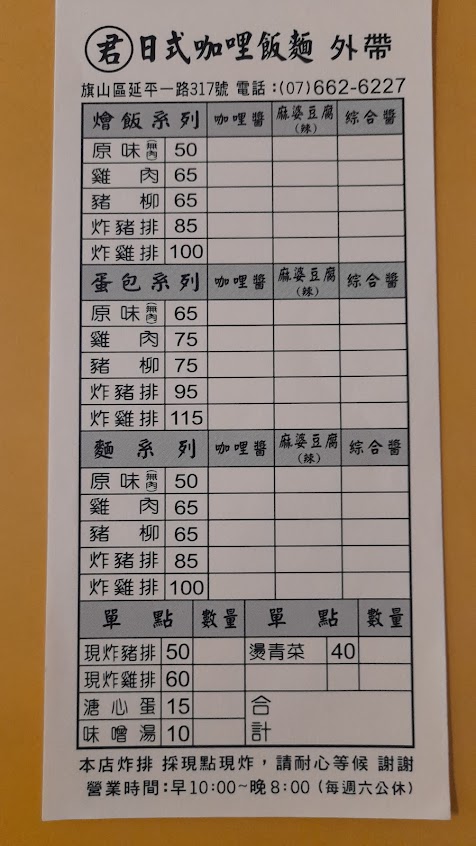 君 日式咖哩飯麵 外帶
旗山區延平一路317號 電話:(07)662-6227
燴飯系列 咖哩醬 麻婆豆腐(辣) 綜合醬
原味(無肉) 50
雞肉 65
豬柳 65
炸豬排 85
炸雞排 100
蛋包系列 咖哩醬 麻婆豆腐(辣) 綜合醬
原味(無肉) 65
雞肉 75
豬柳 75
炸豬排 95
炸雞排 115
麵系列 咖哩醬 麻婆豆腐(辣) 綜合醬
原味(無肉) 50
雞肉 65
豬柳 65
炸豬排 85
炸雞排 100
單點 數量 單點 數量
現炸豬排 50 燙青菜 40
現炸雞排 60
溏心蛋 15 合計
味噌湯 10
本店炸排 採現點現炸,請耐心等候 謝謝
營業時間:早10:00~晚8:00 (每週六公休)